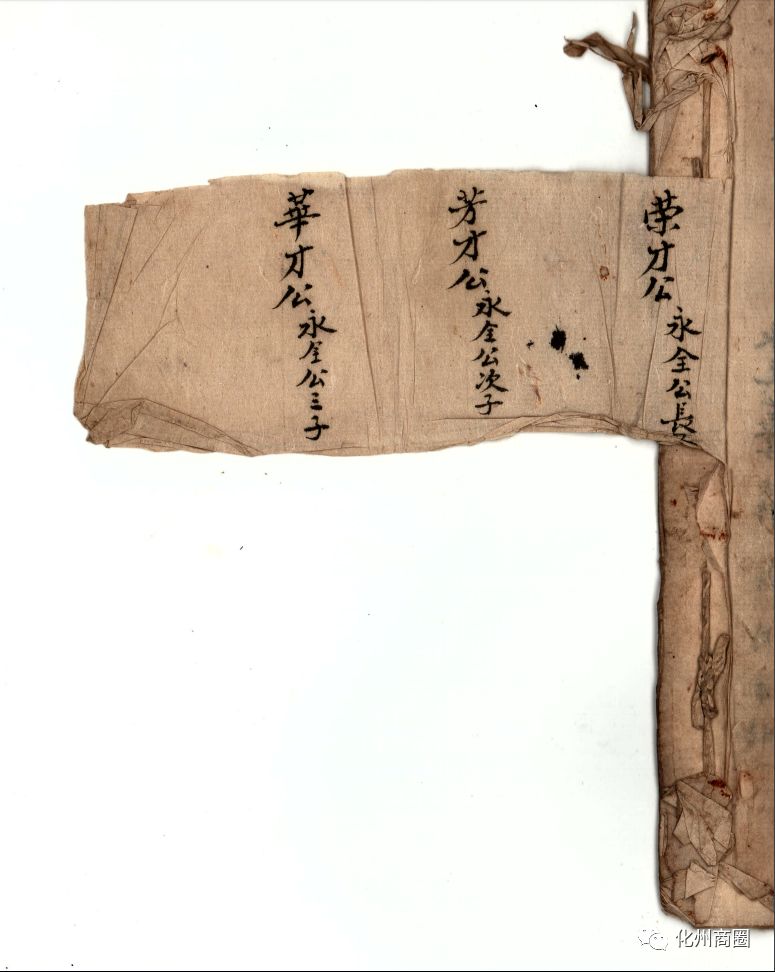 荣才公 永全公長
芳才公 永全公次子
華才公 永全公三子
化州商圈